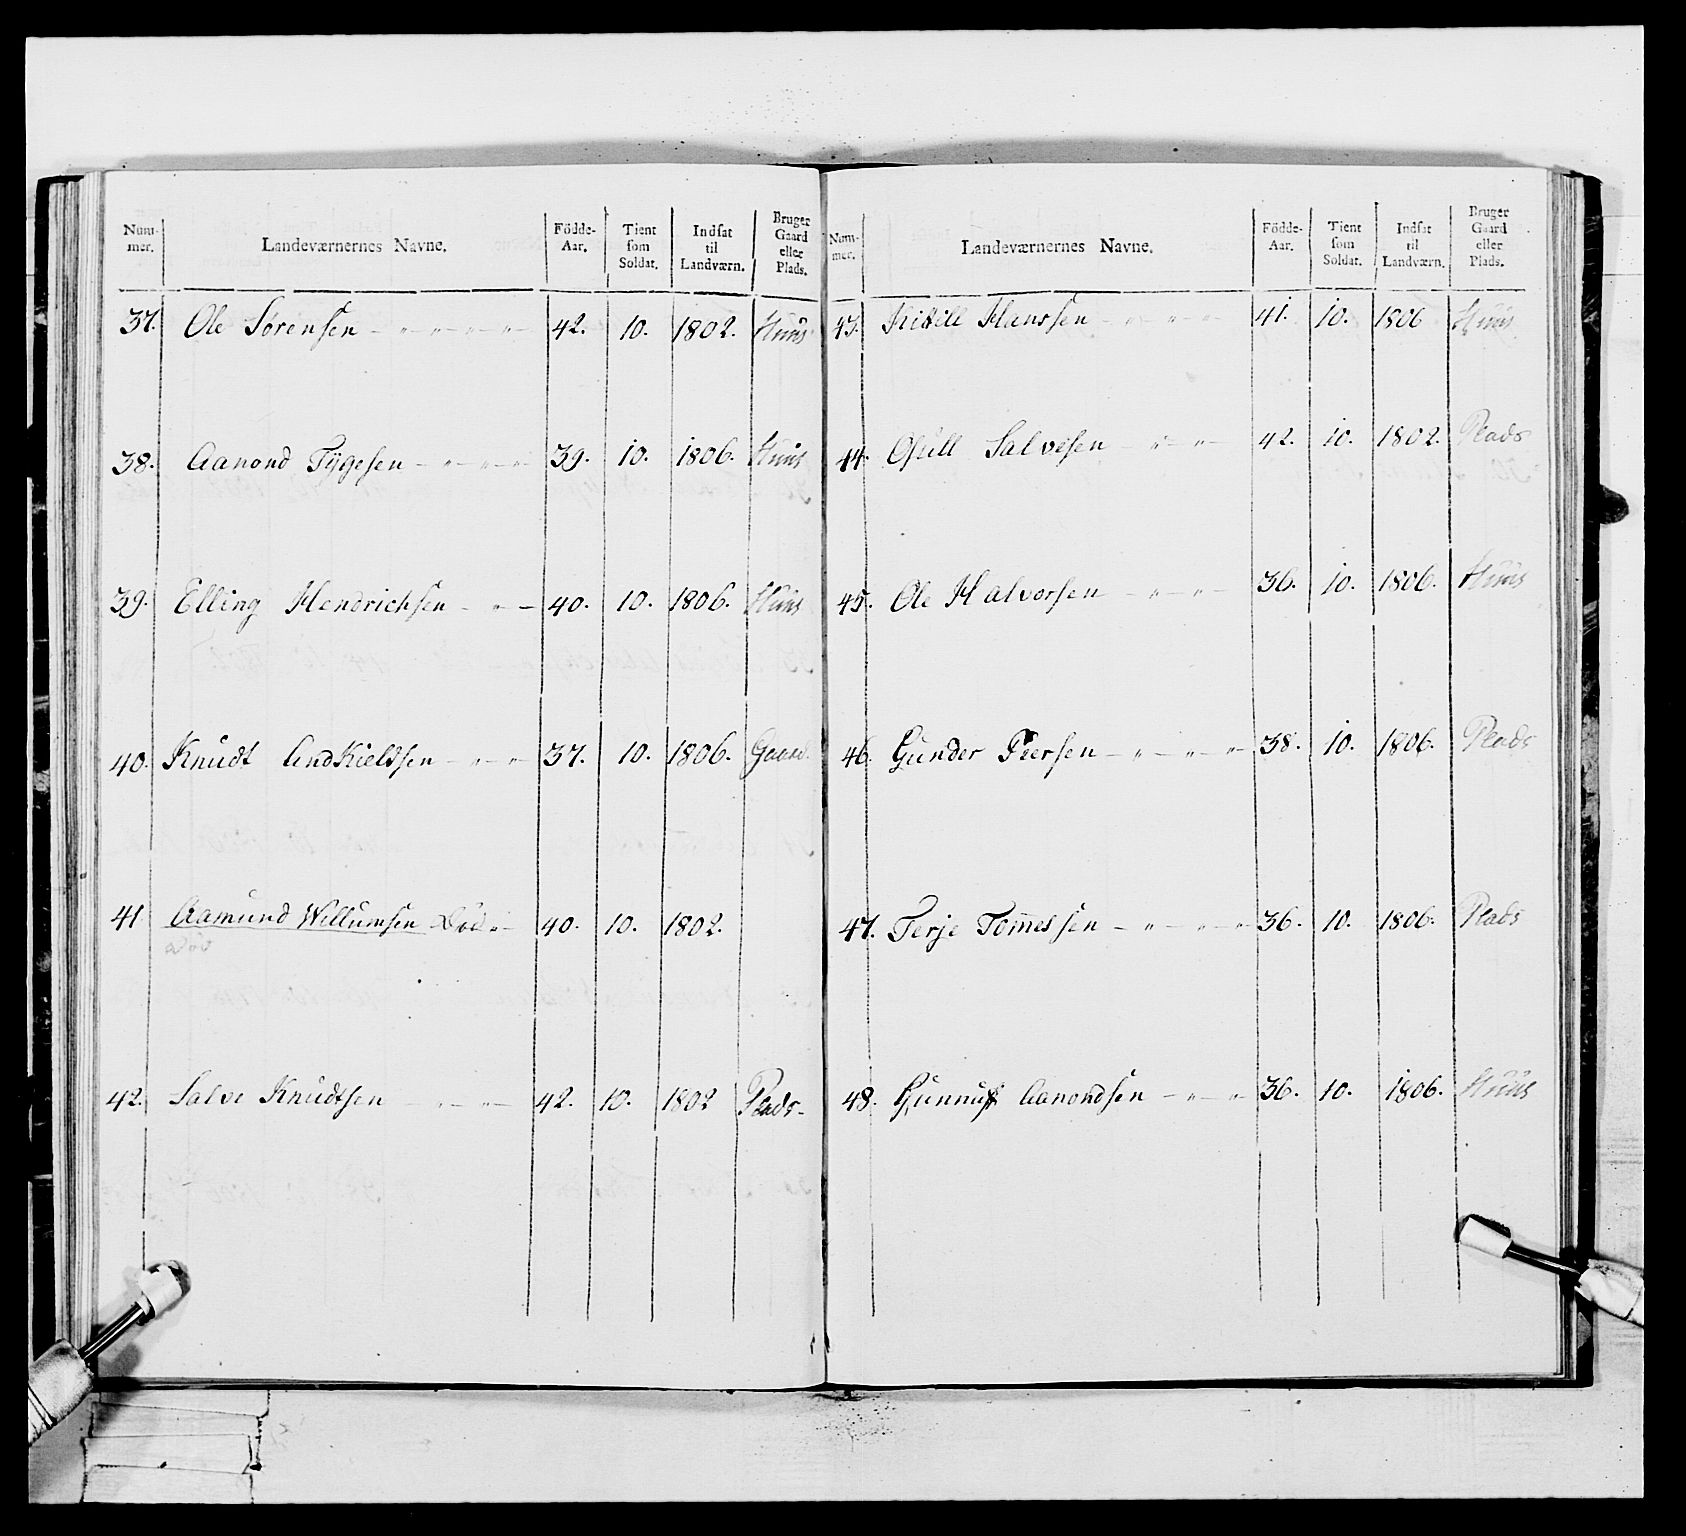 Num-
mer.
Landeværnernes Navne.
Födde-
Aar.
Tient
som
Soldat.
Indsat
til
Landværn.
Bruger
Gaard
eller
Plads.
37. Ole Sørensen 42. 10. 1802. Huus
38. Aanond Tÿgesen 39. 10. 1806. Huus
39. Elling Hendrichsen 40. 10. 1806. Huus
40. Knudt AndKieldsen 37. 10. 1806. Gaard.
41 Aamund Willumsen Död 40. 10. 1802.
död
42. Salve Knudtsen 42. 10. 1802 Plads
Num-
mer.
Landeværnernes Navne.
Födde-
Aar.
Tient
som
Soldat.
Indsat
til
Landværn.
Bruger
Gaard
eller
Plads.
43. Kitill Hanssen 41. 10. 1806 Huus
44. Osull Salvesen 42. 10. 1802. Plads
45. Ole Halvorsen 36. 10. 1806. Huus
46. Gunder Peersen 38. 10. 1806. Plads
47. Terje Tom̅essen 36. 10. 1806. Plads
48. Aanondsen 36. 10. 1806. Huus